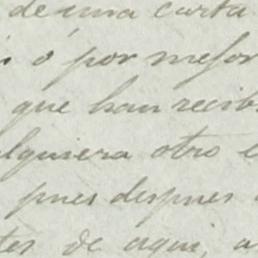 de una carta
ó por mejor
que han recib
lquiera otro
pues despues
tes de aqui, a